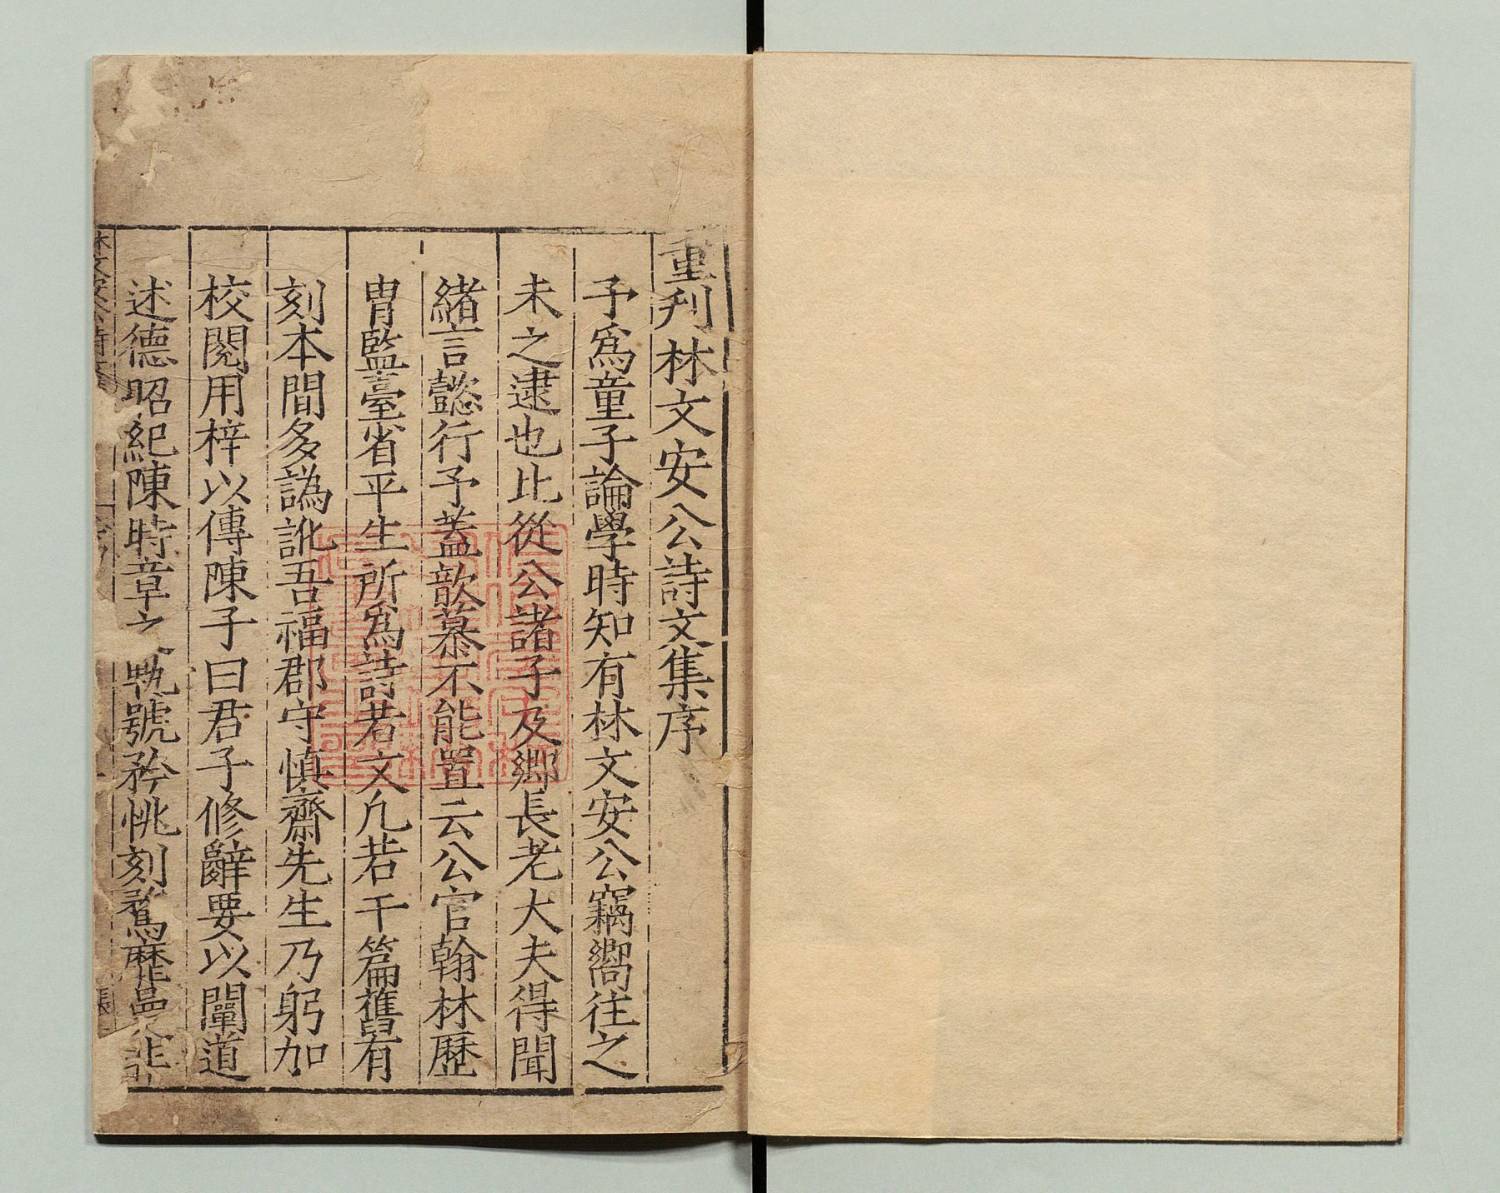 重刊林文安公詩文集序
予爲童子論學時知有林文安公竊嚮往之
未之逮也比從公諸子及鄉長老大夫得聞
緒言懿行予蓋歆慕不能置云公官翰林歷
胄監臺省平生所爲詩若文凡若干篇舊有
刻本間多譌訛吾福郡守慎齋先生乃躬加
校閱用梓以傳陳子曰君子修辭要以闡道
述德昭紀陳時章之 號矜恌刻鶩靡曼非